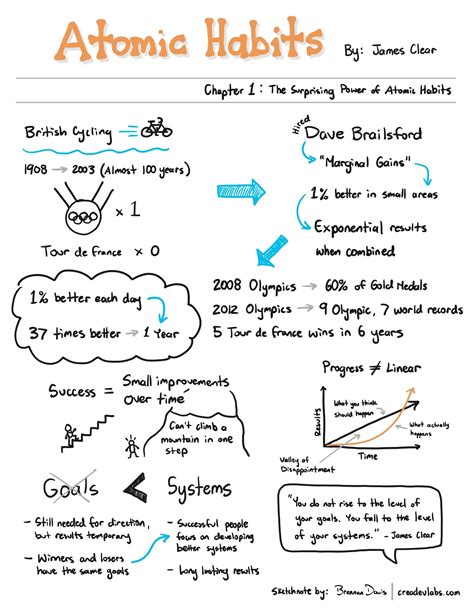 Atomic Habits
By: James Clear
Chapter 1: The Surprising Power of Atomic Habits
British Cycling
1908 → 2003 (Almost 100 years)
x 1
Tour de france x 0
Hired
Dave Brailsford
"Marginal Gains"
1% better in small areas
Exponential results
when combined
2008 Olympics → 60% of Gold Medals
2012 Olympics → 9 Olympic, 7 world records
5 Tour de france wins in 6 years
1% better each day
37 times better → 1 Year
Success = Small improvements
over time
Can't climb a
mountain in one
step
Progress ≠ Linear
Results
What you think
should happen
What actually
happens
Valley of
Disappointment
Time
Goals < Systems
- Still needed for direction,
but results temporary
- Winners and losers
have the same goals
- Successful people
focus on developing
better systems
- Long lasting results
"You do not rise to the level of
your goals. You fall to the level
of your systems." - James Clear
Sketchnote by: Brennan Davis | creadevlabs.com